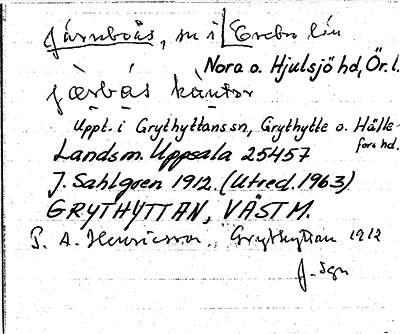 Järnboås, sn i Örebro län
Nora o. Hjulsjö hd, Ör. l.
järbås kàntor
Uppt. i Grythyttans sn, Grythytte o. Hälle-
fors hd.
Landsm. Uppsala 25457
J. Sahlgren 1912. (Utred. 1963)
GRYTHYTTAN, VÄSTM.
P. A. Henricson, Grythyttan 1912
J. Sgn